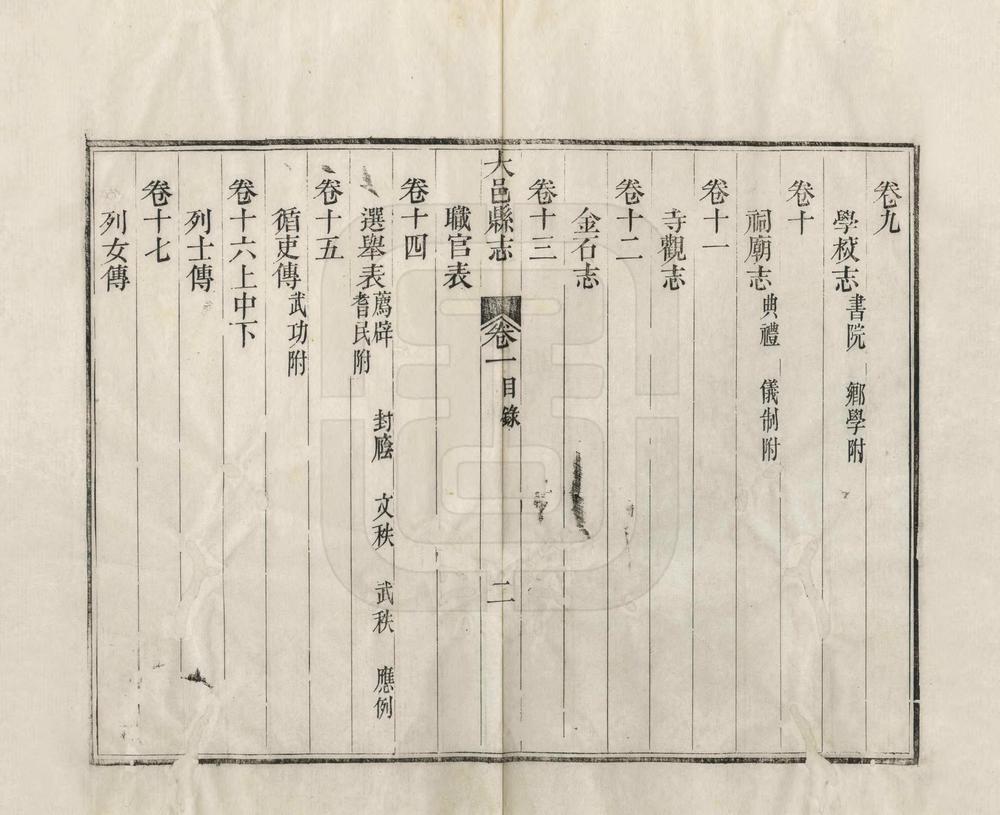 卷九
學校志書院　鄉學附
卷十
祠廟志典禮　儀制附
卷十一
寺觀志
卷十二
金石志
卷十三
大邑縣志　卷一目錄　二
職官表
卷十四
選舉表薦辟　封廕　文秩　武秩　應例
耆民附
卷十五
循吏傳武功附
卷十六上中下
列士傳
卷十七
列女傳